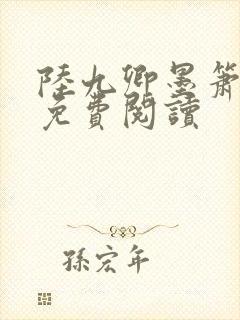 陸九卿墨簫
免費閱讀
孫宏年